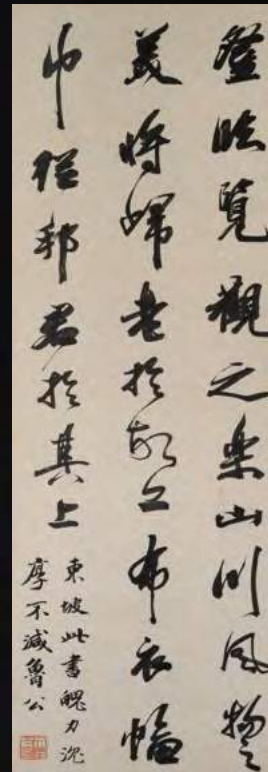 登臨覽觀之樂山川風物之
美將歸老於故丘布衣幅
巾從邦君於其上
東坡此書魄力沈
厚不減魯公